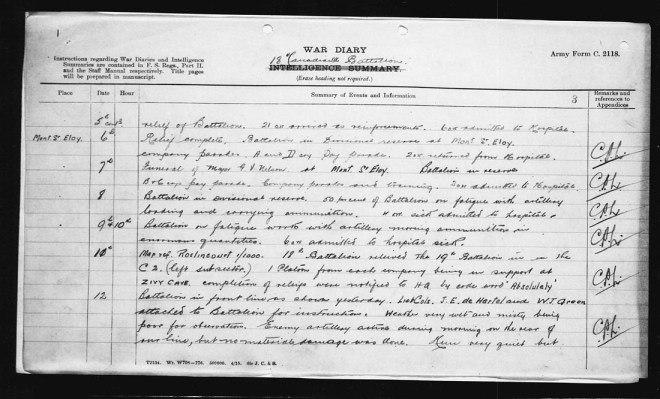 WAR DIARY
18 Canadian Battalion
INTELLIGENCE SUMMARY.
(Erase heading not required.)
Army Form C. 2118.
Instructions regarding War Diaries and Intelligence
Summaries are contained in F. S. Regs., Part II.
and the Staff Manual respectively. Title pages
will be prepared in manuscript.
Place Date Hour Summary of Events and Information Remarks and references to Appendices
3
5th relief of Battalion. 21 arrived as reinforcements. 6 admitted to Hospital.
Mont St Eloy. 6th Relief complete. Battalion in Divisional reserve at Mont St Eloy.
company parades. A and D Coy Pay parade. 2 returned from Hospital.
7th Funeral of Major G J Nelson at Mont St Eloy. Battalion in reserve
B & C pay parade. Company parades and training. admitted to Hospital
8 Battalion in divisional reserve. 50 of Battalion on fatigue with artillery
loading and carrying ammunition. sick admitted to hospital.
9th 10th Battalion on fatigue work with artillery moving ammunition in
enormous quantities. 6 admitted to hospital sick.
10th Map ref. Roclincourt 1/1000. 18th Battalion relieved the 19th Battalion in the
C 2. (left subsector) 1 Platoon from each company being in support at
ZIVY CAVE. completion of reliefs were notified to HQ by code word 'Absolutely'
12 Battalion in front line as shown yesterday. J. E. de Hertel and W. J. Green
attached to Battalion for instruction. Weather very wet and misty being
poor for observation. Enemy artillery active during morning on the rear of
our line, but no material damage was done. very quiet but